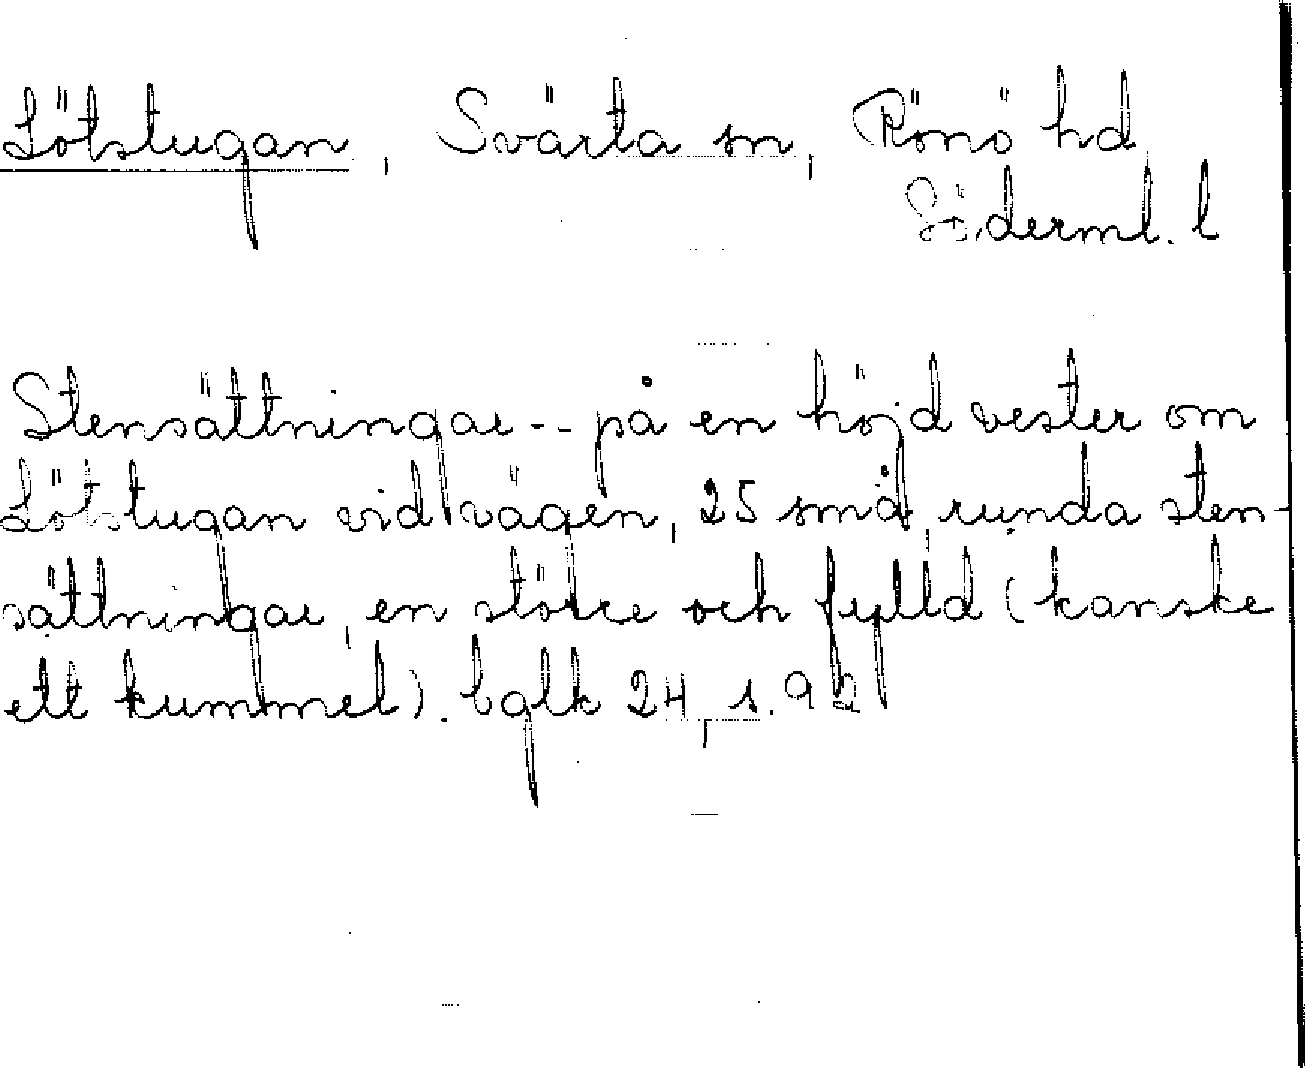 Lötstugan, Svärta sn, Rönö hd
Söderml. l
Stensättningar -- på en höjd vester om
Lötstugan vid vägen, 25 små, runda sten-
sättningar, en större och fylld (kanske
ett kummel). bglk 24, s. 92